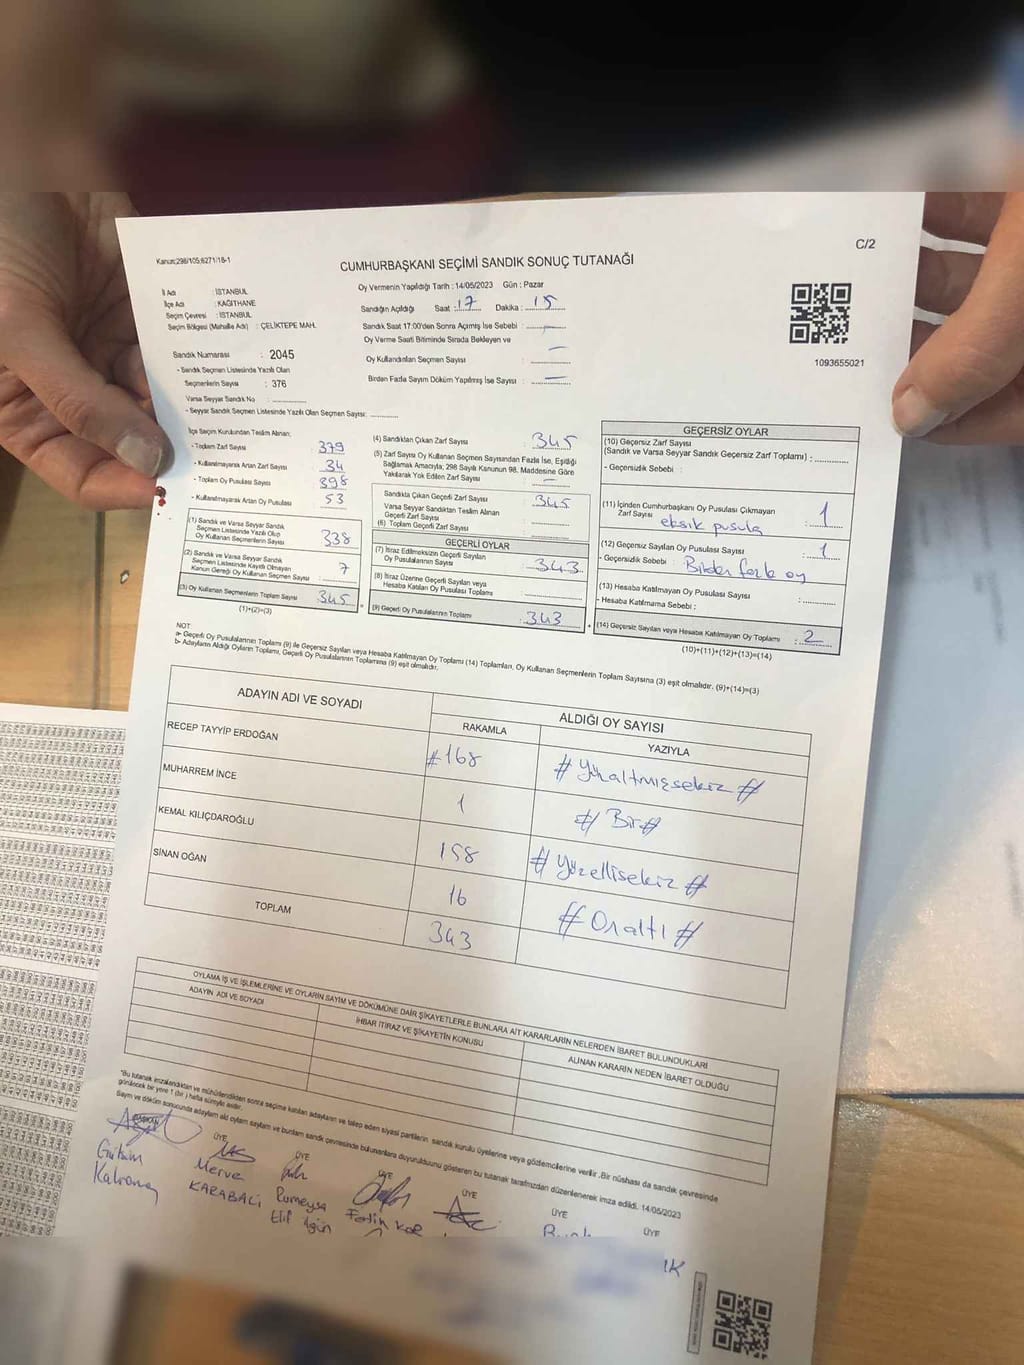 C/2
Kanun:298/105;6271/18-1
CUMHURBAŞKANI SEÇİMİ SANDIK SONUÇ TUTANAĞI
İl Adı : İSTANBUL
İlçe Adı : KAĞITHANE
Seçim Çevresi : İSTANBUL
Seçim Bölgesi (Mahalle Adı) : ÇELİKTEPE MAH.
Oy Vermenin Yapıldığı Tarih : 14/05/2023 Gün : Pazar
Sandığın Açıldığı Saat : 17 Dakika : 15
Sandık Saat 17:00'den Sonra Açılmış İse Sebebi : —
Oy Verme Saati Bitiminde Sırada Bekleyen ve —
Oy Kullandırılan Seçmen Sayısı :
Birden Fazla Sayım Döküm Yapılmış İse Sayısı : —
1093655021
Sandık Numarası : 2045
- Sandık Seçmen Listesinde Yazılı Olan
Seçmenlerin Sayısı : 376
Varsa Seyyar Sandık No :
- Seyyar Sandık Seçmen Listesinde Yazılı Olan Seçmen Sayısı:
İlçe Seçim Kurulundan Teslim Alınan;
- Toplam Zarf Sayısı : 379
- Kullanılmayarak Artan Zarf Sayısı : 34
- Toplam Oy Pusulası Sayısı : 398
- Kullanılmayarak Artan Oy Pusulası : 53
(1) Sandık ve Varsa Seyyar Sandık
Seçmen Listesinde Yazılı Olup
Oy Kullanan Seçmenlerin Sayısı : 338
(2) Sandık ve Varsa Seyyar Sandık
Seçmen Listesinde Kayıtlı Olmayan
Kanun Gereği Oy Kullanan Seçmen Sayısı : 7
(3) Oy Kullanan Seçmenlerin Toplam Sayısı : 345
(1)+(2)=(3)
(4) Sandıktan Çıkan Zarf Sayısı : 345
(5) Zarf Sayısı Oy Kullanan Seçmen Sayısından Fazla İse, Eşitliği
Sağlamak Amacıyla; 298 Sayılı Kanunun 98. Maddesine Göre
Yakılarak Yok Edilen Zarf Sayısı : —
Sandıkta Çıkan Geçerli Zarf Sayısı : 345
Varsa Seyyar Sandıktan Teslim Alınan
Geçerli Zarf Sayısı :
(6) Toplam Geçerli Zarf Sayısı :
GEÇERLİ OYLAR
(7) İtiraz Edilmeksizin Geçerli Sayılan
Oy Pusulalarının Sayısı : 343
(8) İtiraz Üzerine Geçerli Sayılan veya
Hesaba Katılan Oy Pusulası Toplamı :
(9) Geçerli Oy Pusulalarının Toplamı : 343
GEÇERSİZ OYLAR
(10) Geçersiz Zarf Sayısı
(Sandık ve Varsa Seyyar Sandık Geçersiz Zarf Toplamı) :
- Geçersizlik Sebebi :
(11) İçinden Cumhurbaşkanı Oy Pusulası Çıkmayan
Zarf Sayısı : 1
eksik pusula
(12) Geçersiz Sayılan Oy Pusulası Sayısı : 1
- Geçersizlik Sebebi : Birden fazla oy
(13) Hesaba Katılmayan Oy Pusulası Sayısı :
- Hesaba Katılmama Sebebi :
(14) Geçersiz Sayılan veya Hesaba Katılmayan Oy Toplamı : 2
(10)+(11)+(12)+(13)=(14)
NOT
a- Geçerli Oy Pusulalarının Toplamı (9) ile Geçersiz Sayılan veya Hesaba Katılmayan Oy Toplamı (14) Toplamları, Oy Kullanan Seçmenlerin Toplam Sayısına (3) eşit olmalıdır. (9)+(14)=(3)
b- Adayların Aldığı Oyların Toplamı, Geçerli Oy Pusulalarının Toplamına (9) eşit olmalıdır.
ADAYIN ADI VE SOYADI ALDIĞI OY SAYISI
RAKAMLA YAZIYLA
RECEP TAYYİP ERDOĞAN #168 #Yüzaltmışsekiz#
MUHARREM İNCE 1 #Bir#
KEMAL KILIÇDAROĞLU 158 #Yüzellisekiz#
SİNAN OĞAN 16 #Onaltı#
TOPLAM 343
OYLAMA İŞ VE İŞLEMLERİNE VE OYLARIN SAYIM VE DÖKÜMÜNE DAİR ŞİKAYETLERLE BUNLARA AİT KARARLARIN NELERDEN İBARET BULUNDUKLARI
ADAYIN ADI VE SOYADI İHBAR İTİRAZ VE ŞİKAYETİN KONUSU ALINAN KARARIN NEDEN İBARET OLDUĞU
"Bu tutanak imzalandıktan ve mühürlendikten sonra seçime katılan adayların ve talep eden siyasi partilerin, sandık kurulu üyelerine veya gözlemcilerine verilir. Bir nüshası da sandık çevresinde
görülecek bir yere 1 (bir) hafta süreyle asılır.
Sayım ve döküm sonucunda adayların aldığı oyların sayılarını ve bunların sandık çevresinde bulunanlara duyurulduğunu gösteren bu tutanak tarafımızdan düzenlenerek imza edildi. 14/05/2023
BAŞKAN ÜYE ÜYE ÜYE ÜYE ÜYE ÜYE
Merve
KARABALİ
Rumeysa
Elif ilgün
Fatih